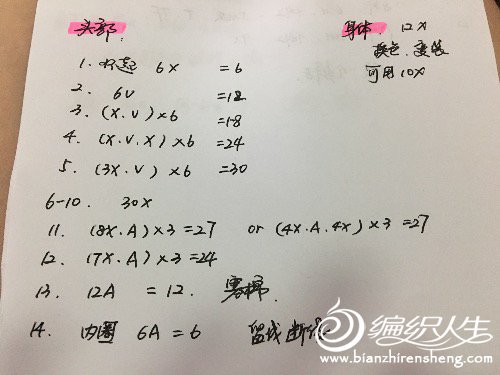 头部:
身体 12X
换色.变装
可用10X
1. 环起 6X = 6
2. 6V =12
3. (X.V) ×6 =18
4. (X.V.X) ×6 =24
5. (3X.V) ×6 =30
6-10. 30X
11. (8X.A) ×3 =27 or (4X.A.4X) ×3 =27
12. (7X.A) ×3 =24
13. 12A = 12. 塞棉
14. 内圈 6A = 6 留线断线
编织人生
www.bianzhirensheng.com